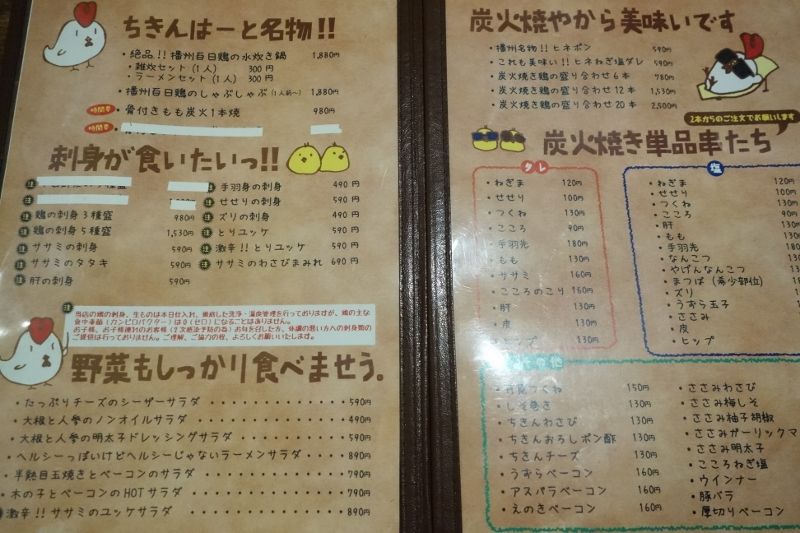 ちきんはーと名物!!
・絶品!!播州百日鶏の水炊き鍋 1,880円
・雑炊セット(1人) 300円
・ラーメンセット(1人) 300円
・播州百日鶏のしゃぶしゃぶ(1人前〜) 1,880円
・骨付きもも炭火1本焼 980円
刺身が食いたいっ!!
鶏の刺身3種盛 980円
鶏の刺身5種盛 1,530円
ササミの刺身 590円
ササミのタタキ 590円
肝の刺身 590円
手羽身の刺身 490円
せせりの刺身 490円
ズリの刺身 490円
とりユッケ 590円
激辛!!とりユッケ 590円
ササミのわさびまみれ 690円
野菜もしっかり食べませう。
・たっぷりチーズのシーザーサラダ 590円
・大根と人参のノンオイルサラダ 490円
・大根と人参の明太子ドレッシングサラダ 590円
・ヘルシーっぽいけどヘルシーじゃないラーメンサラダ 890円
・半熟目玉焼きとベーコンのサラダ 790円
・木の子とベーコンのHOTサラダ 790円
激辛!!ササミのユッケサラダ 890円
炭火焼やから美味いです
・播州名物!!ヒネポン 590円
・これも美味い!!ヒネねぎ塩ダレ 590円
・炭火焼き鶏の盛り合わせ6本 780円
・炭火焼き鶏の盛り合わせ12本 1,530円
・炭火焼き鶏の盛り合わせ20本 2,500円
2本からのご注文でお願いします
炭火焼き単品串たち
タレ
・ねぎま 120円
・せせり 100円
・つくね 130円
・こころ 90円
・手羽先 180円
・もも 130円
・ササミ 160円
・こころのこり 160円
・肝 130円
・皮 130円
・ヒップ 130円
塩
・ねぎま
・せせり
・つくね
・こころ
・肝
・もも
・手羽先
・なんこつ
・やげんなんこつ
・まつば(希少部位)
・ズリ
・うずら玉子
・ささみ
・皮
・ヒップ
つくね 150円
・しそ巻き 130円
・ちきんわさび 130円
・ちきんおろしポン酢 130円
・ちきんチーズ 130円
・うずらベーコン 160円
・アスパラベーコン 160円
・えのきベーコン 160円
・ささみわさび
・ささみ梅しそ
・ささみ柚子胡椒
・ささみガーリックマ
・ささみ明太子
・こころねぎ塩
・ウインナー
・豚バラ
・厚切りベーコン